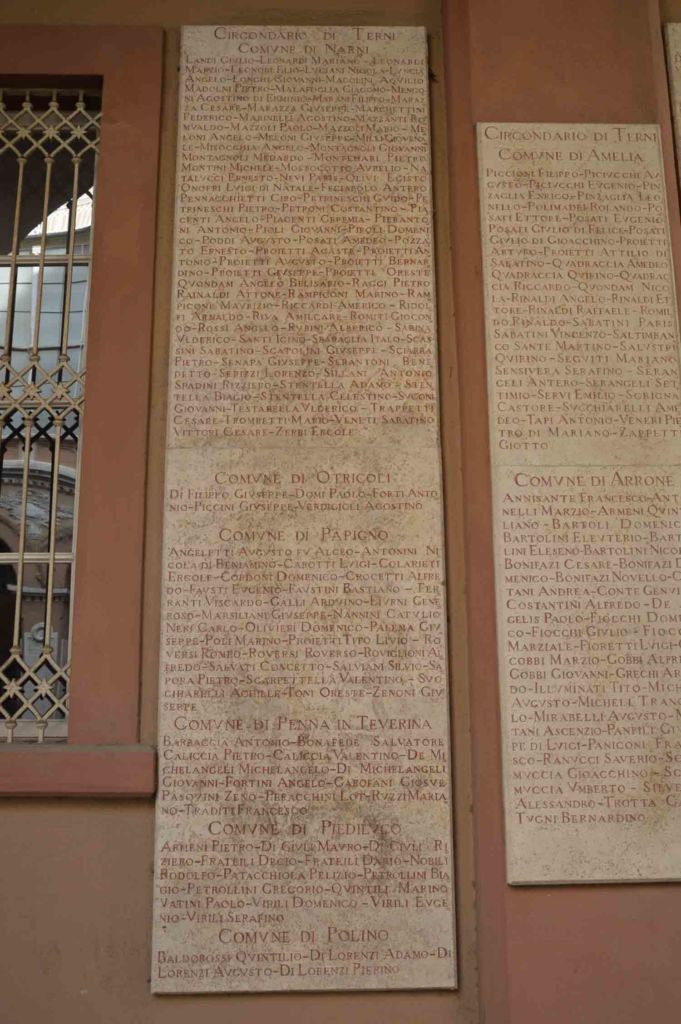 CIRCONDARIO DI TERNI
COMVNE DI NARNI
LANDI GIVLIO-LEONARDI MARIANO-LEONARDI
MARZIO-LEONORI ELIO-LVCIANI NICOLA-LVNCIA
ANGELO-LONGHI GIOVANNI-MADOLINI AQVILIO
MADOLNI PIETRO-MALAFOGLIA GIACOMO-MENCO
NI AGOSTINO DI ERMINIO-MARANI FILIPPO-MARAZ
ZA CESARE-MARAZZA GIVSEPPE-MARCHETTINI
FEDERICO-MARINELLI AGOSTINO-MAZZANTI RO
MVALDO-MAZZOLI PAOLO-MAZZOLI MARIO-ME
LONI ANGELO-MELONI GIVSEPPE-MILI GIOVENA
LE-MICOCCHIA ANGELO-MONTAGNOLI GIOVANNI
MONTAGNOLI MEDARDO-MONTENARI PIETRO
MONTINI MICHELE-MOSTOCOTTO AVRELIO-NA
TALVCCI ERNESTO-NEVI PARIS-OLIVI EGISTO
ONOFRI LVIGI DI NATALE-FECIAROLO ANTERO
PENNACCHIETTI CIRO-PETRINESCHI GVIDO-PE
TRINESCHI PIETRO-PETRONI COSTANTINO-PIA
CENTI ANGELO-PIACENTI GEREMIA-PIERANTO
NI ANTONIO-PIOLI GIOVANNI-PIROLI DOMENI
CO-PODDI AVGVSTO-POSATI AMEDEO-POZZA
TO ERNESTO-PROIETTI AGASTE-PROIETTI AN
TONIO-PROIETTI AVGVSTO-PROIETTI BERNAR
DINO-PROIETTI GIVSEPPE-PROIETTI ORESTE
QVONDAM ANGELO BELISARIO-RAGGI PIETRO
RAINALDI ATTONE-RAMPICONI MARINO-RAM
PICONI MAVRIZIO-RICCARDI AMERICO-RIDOL
FI ARNALDO-RIVA AMILCARE-ROMITI GIOCON
DO-ROSSI ANGELO-RVBINI ALBERICO-SABINA
VLDERICO-SANTI IGINO-SBARAGLIA ITALO-SCAS
SINI SABATINO-SCATOLINI GIVSEPPE-SCIARRA
PIETRO-SENAPA GIVSEPPE-SERANTONI BENE
DETTO-SERIZZI LORENZO-SILLANI ANTONIO
SPADINI RIZZIERO-STENTELLA ADAMO-STEN
TELLA BIAGIO-STENTELLA CELESTINO-SVGONI
GIOVANNI-TESTABELLA VLDERICO-TRAPPETTI
CESARE-TROMBETTI MARIO-VENETI SABATINO
VITTORI CESARE-ZERBI ERCOLE
COMVNE DI OTRICOLI
DI FILIPPO GIVSEPPE-DOMI PAOLO-FORTI ANTO
NIO-PICCINI GIVSEPPE-VERDICIOLI AGOSTINO
COMVNE DI PAPIGNO
ANGELETTI AVGVSTO FV ALCEO-ANTONINI NI
COLA DI BENIAMINO-CAROTTI LVIGI-COLARIETI
ERCOLE-CORDONI DOMENICO-CROCETTI ALFRE
DO-FAVSTI EVGENIO-FAVSTINI BASTIANO-FER
RANTI VISCARDO-GALLI ARDVINO-LIVRNI GENE
ROSO-MARSILIANI GIVSEPPE-NANNINI CATVLIO
NERI CARLO-OLIVIERI DOMENICO-PALEMA GIV
SEPPE-POLI MARINO-PROIETTI TITO LIVIO-RO
VERSI ROMEO-ROVERSI ROVERSO-ROVIGLIONI AL
FREDO-SALVATI CONCETTO-SALVIANI SILVIO-SA
PORA PIETRO-SCARPETTELLA VALENTINO-SVO
CHIARELLI ACHILLE-TONI ORESTE-ZENONI GIV
SEPPE
COMVNE DI PENNA IN TEVERINA
BARBACCIA ANTONIO-BONAFEDE SALVATORE
CALICCIA PIETRO-CALICCIA VALENTINO-DE MI
CHELANGELI MICHELANGELO-DI MICHELANGELI
GIOVANNI-FORTINI ANGELO-GAROFANI GIOSVE
PASQVINI ZENO-PERACCHINI LOT-RVZZI MARIA
NO-TRADITI FRANCESCO
COMVNE DI PIEDILVCO
ARMENI PIETRO-DI GIVLI MAVRO-DI GIVLI RI
ZIERO-FRATEILI DECIO-FRATEILI DARIO-NOBILI
RODOLFO-PATACCHIOLA PELIZIO-PETROLLINI BIA
GIO-PETROLLINI GREGORIO-QVINTILI MARINO
VATINI PAOLO-VIRILI DOMENICO-VIRILI EVGE
NIO-VIRILI SERAFINO
COMVNE DI POLINO
BALDOROSSI QVINTILIO-DI LORENZI ADAMO-DI
LORENZI AVGVSTO-DI LORENZI PIERINO
CIRCONDARIO DI TERNI
COMVNE DI AMELIA
PICCIONI FILIPPO-PICIVCCHI AV
GVSTO-PICIVCCHI EVGENIO-PIN
ZAGLIA ENRICO-PINZAGLIA LEO
NELLO-POLIMADEI ROLANDO-PO
SATI ETTORE-POSATI EVGENIO
POSATI GIVLIO DI FELICE-POSATI
GIVLIO DI GIOACCHINO-PROIETTI
ARTVRO-PROIETTI ATTILIO DI
SABATINO-QVADRACCIA AMEDEO
QVADRACCIA QVIRINO-QVADRAC
CIA RICCARDO-QVONDAM NICO
LA-RINALDI ANGELO-RINALDI ET
TORE-RINALDI RAFFAELE-ROMIL
DO RINALDO-SABATINI PARIS
SABATINI VINCENZO-SALTIMBAN
CO SANTE MARTINO-SALVSTRI
QVIRINO-SEGVITI MARIANO
SENSIVERA SERAFINO-SERAN
GELI ANTERO-SERANGELI SET
TIMIO-SERVI EMILIO-SGRIGNA
CASTORE-SVCCHIARELLI AME
DEO-TAPI ANTONIO-VENERI PIE
TRO DI MARIANO-ZAPPETTI
GIOTTO
COMVNE DI ARRONE
ANNISANTE FRANCESCO-ANTO
NELLI MARZIO-ARMENI QVIN
LIANO-BARTOLI DOMENIC
BARTOLINI ELEVTERIO-BART
LINI ELESENO-BARTOLINI NICO
BONIFAZI CESARE-BONIFAZI D
MENICO-BONIFAZI NOVELLO-C
TANI ANDREA-CONTE GENV
COSTANTINI ALFREDO-DE
GELIS PAOLO-FIOCCHI DOM
CO-FIOCCHI GIVLIO-FIOCC
MARZIALE-FIORETTI LVIGI-
COBBI MARZIO-GOBBI ALFR
GOBBI GIOVANNI-GRECHI AR
DO-ILLVMINATI TITO-MICH
AVGVSTO-MICHELI TRANQ
LO-MIRABELLI AVGVSTO-M
TANI ASCENZIO-PANFILI GI
PE DI LVIGI-PANICONI FRA
SCO-RANVCCI SAVERIO-SC
MVCCIA GIOACCHINO-SC
MVCCIA VMBERTO-SILVE
ALESSANDRO-TROTTA G
TVGNI BERNARDINO